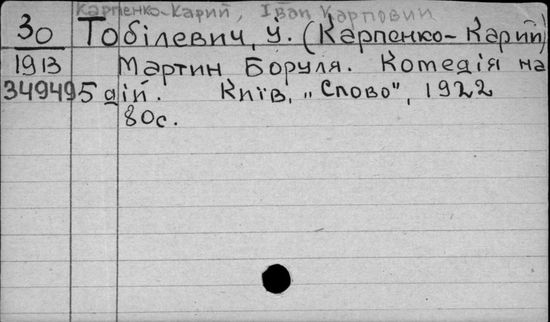 Карпенко-Карий, Іван Карпович
30 Тобілевич, У. (Карпенко-Карий)
1913 Мартин Боруля. Комедія на
34949 5 дій. Київ, "Слово", 1922
80с.